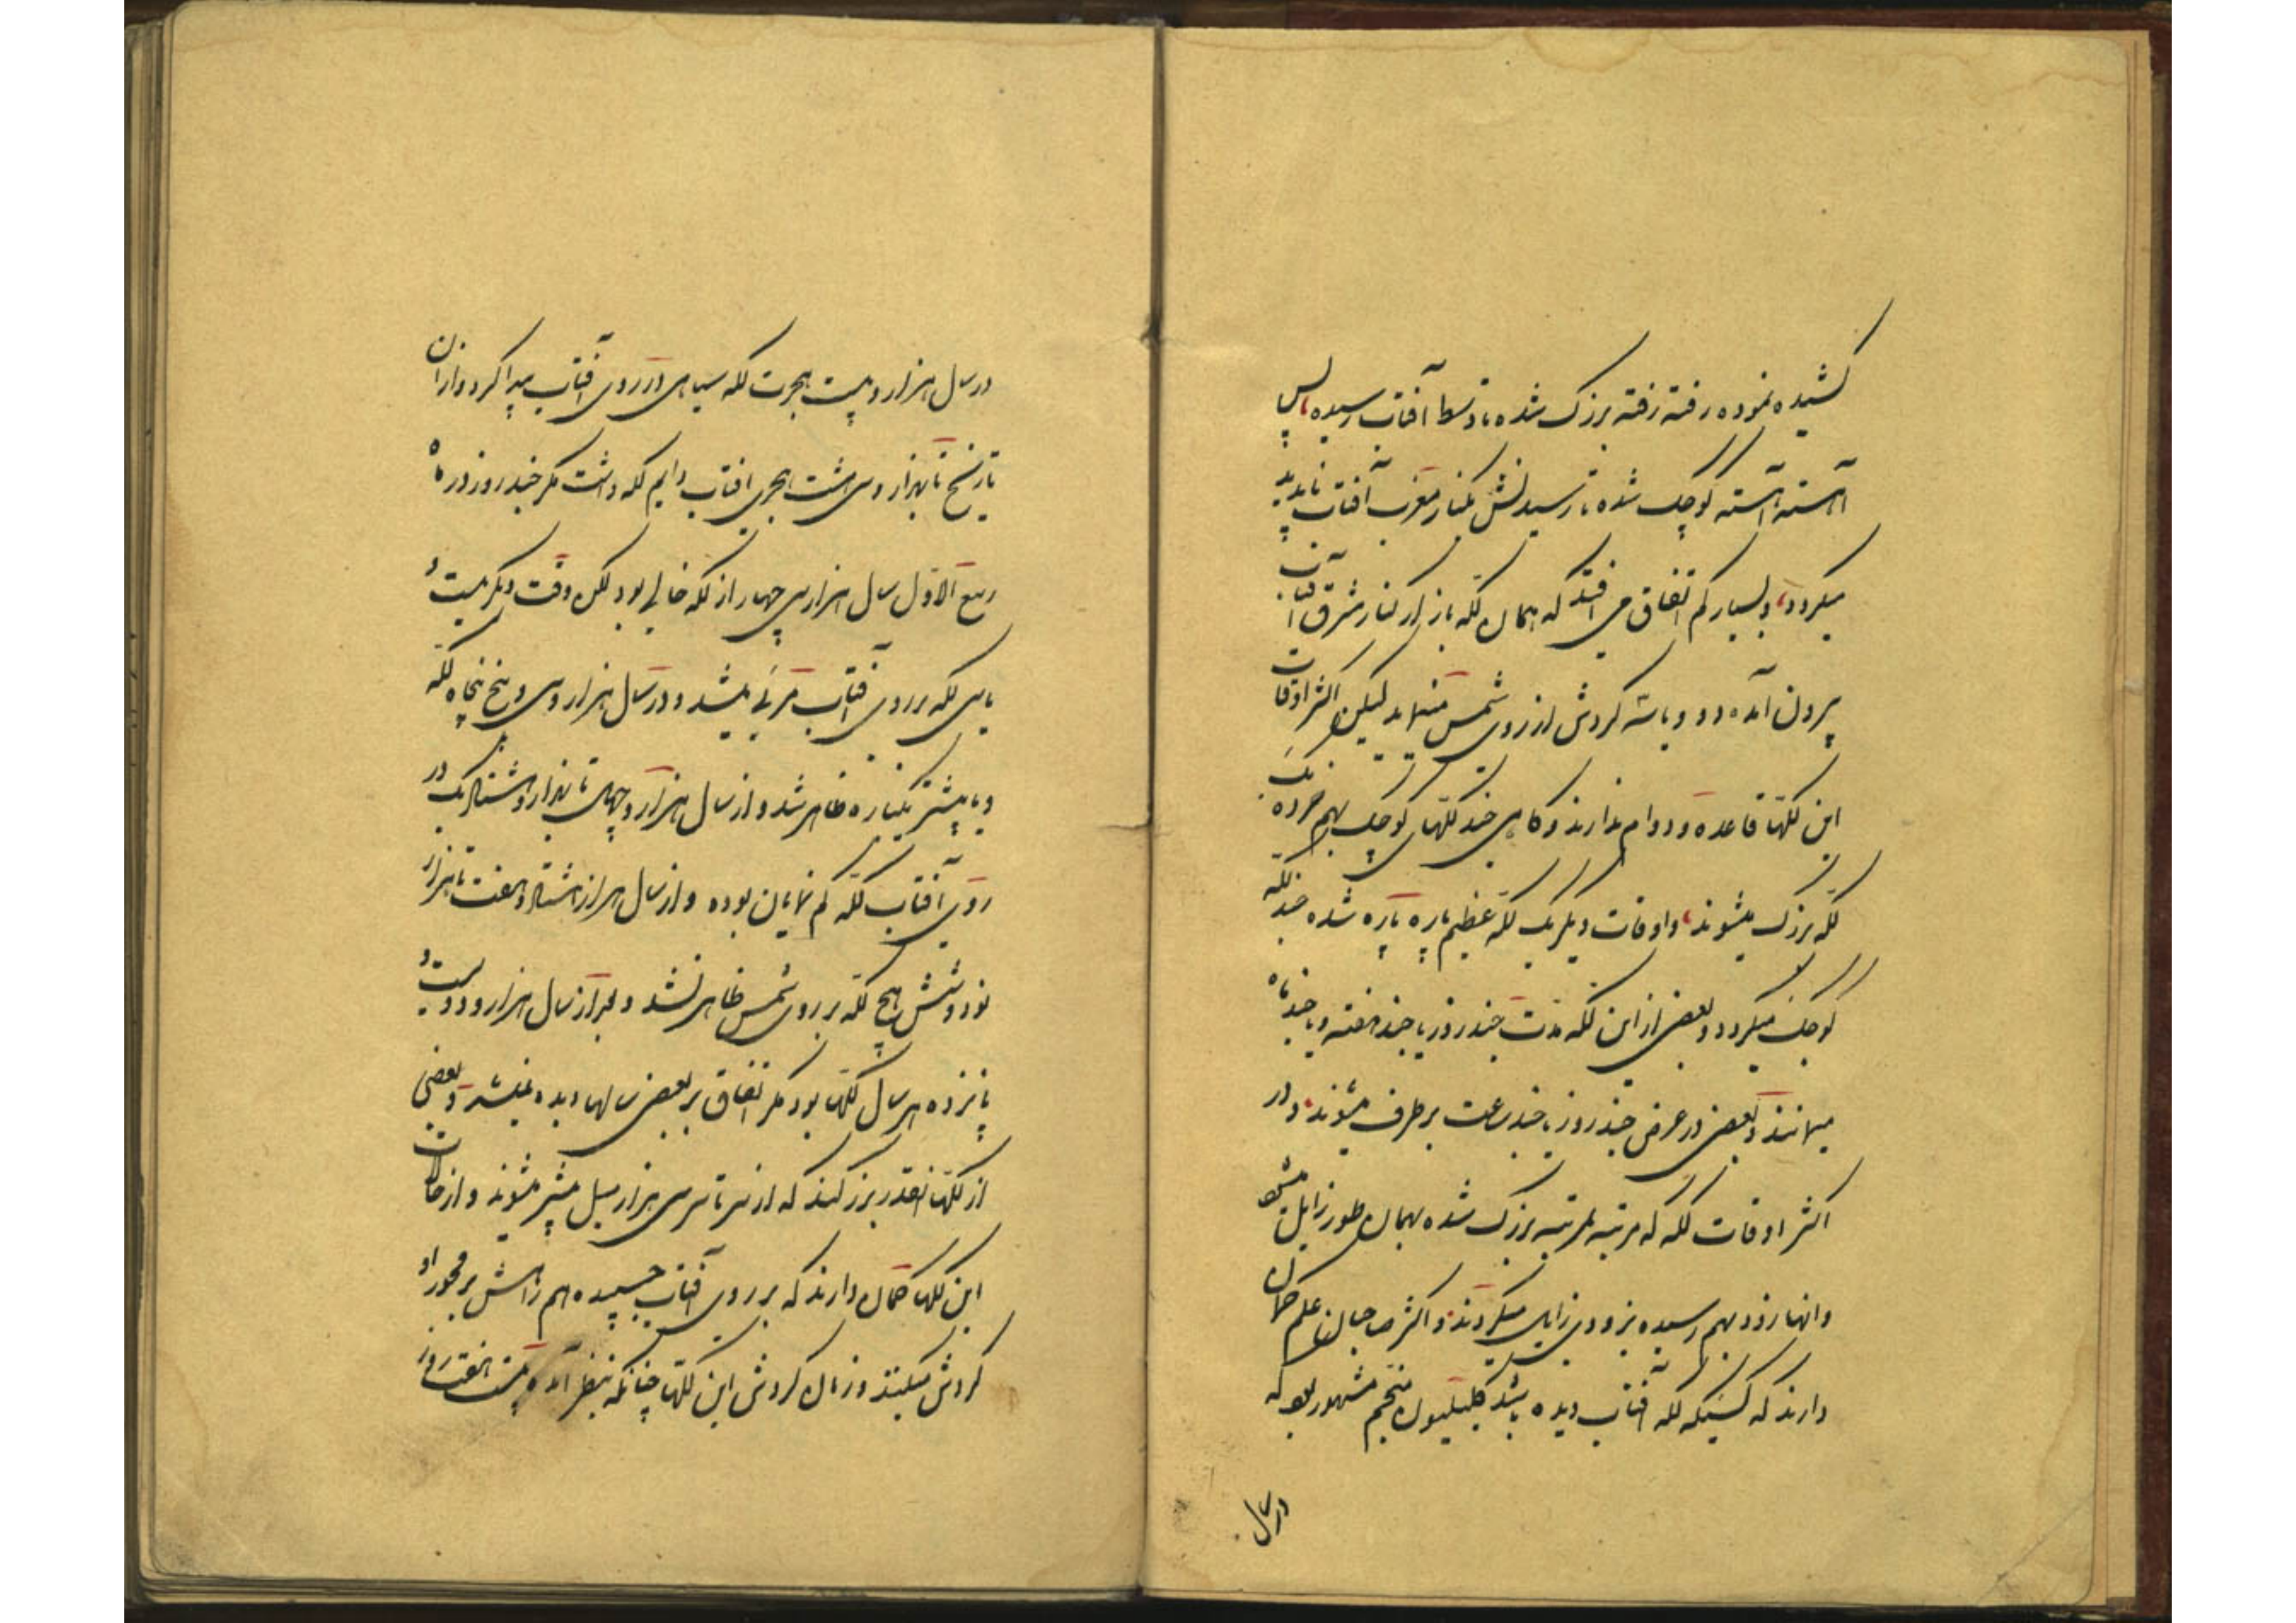 کشیده نموده رفته رفته بزرک شده تا وسط آفتاب رسیده پس
آهسته آهسته کوچک شده تا رسیدنش بکنار مغرب آفتاب ناپدید
میکردد و بسیار کم اتفاق می افتد که همان لکه باز از کنار شرق آفتاب
بیرون آمده دو وباره کردش از روی شمس مینماید لیکن اکثر اوقات
این لکها قاعده و دوام ندارند و کاهی چند لکهای کوچک بهم خورده یک
لکه بزرک میشوند و اوقات دیکر یک لکه عظیم پاره پاره شده چند لکه
کوچک میکردد و بعضی از این لکه مدت چند روز یا چند هفته و یا چند ماه
میمانند و بعضی در عرض چند روز یا چند ساعت برطرف میشوند و در
اکثر اوقات لکه که مرتبه بمرتبه بزرک شده بهمان طور زایل میشود
وانها زود بهم رسیده بزودی زایل میکردند و اکثر صاحبان علم کمان
دارند که کسیکه لکه آفتاب دیده باشد کلیلیون منجم مشهور بود که
در سال
در سال هزار و بیست هجرت لکه سیاهی در روی آفتاب پیدا کرد و از ان
تاریخ تا هزار و سی هشت هجری افتاب دایم لکه داشت مکر چند روز در ماه
ربیع الاول سال هزار سی چهار از لکه خالی بود لکن وقت دیکر بیست و
یا سی لکه بر روی آفتاب مرئی میشد و در سال هزار و سی و پنج پنجاه لکه
و یا بیشتر یکباره ظاهر شد و از سال هزار و چهل تا هزار و هشتاد یک در
روی آفتاب لکه کم نمایان بوده و از سال هزار هشتاد و هفت تا هزار
نود و شش هیچ لکه بر روی شمس ظاهر نشد و بعد از سال هزار و دویست و
پانزده هر سال لکها بود مکر اتفاق بر بعضی سالها دیده نمیشد و بعضی
از لکها انقدر بزرکند که از سر تا سر سی هزار میل بیشتر میشوند و از حالات
این لکها کمان دارند که بر روی آفتاب چسپیده هم راهش بر محور او
کردش میکنند و زمان کردش این لکها چنانکه بنظر آمده بیست هفت روز